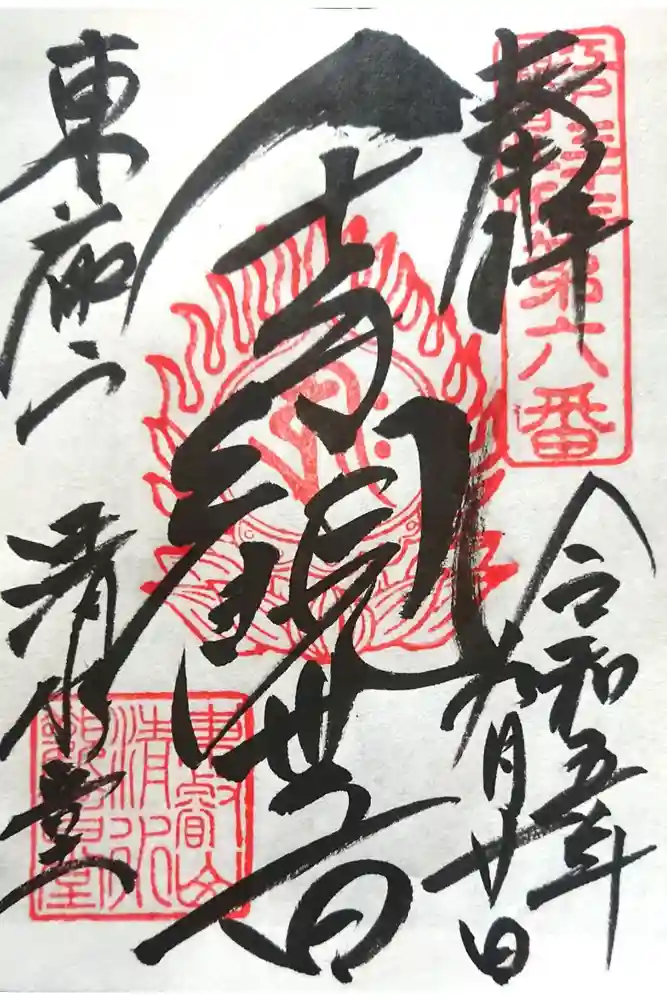 奉拝
第六番
令和五年
六月廿日
千手観世音
東叡山
清水堂
東叡山
清水
観音堂